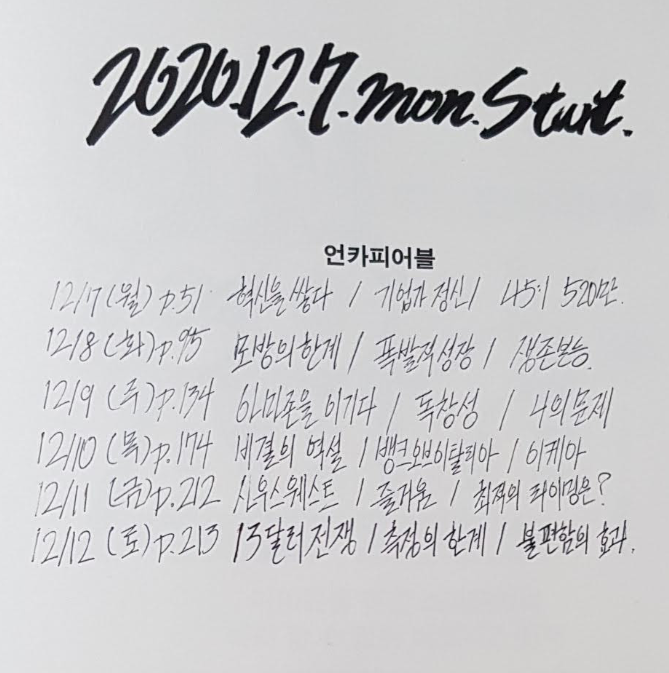 2020.12.7.mon.Start.
언카피어블
12/7(월) p.51 혁신을 쌓다 / 기업가 정신 / 45:1 520만.
12/8(화) p.95 모방의 한계 / 폭발적 성장 / 생존본능.
12/9 (주) p.134 아마존을 이기다 / 독창성 / 나의 문제
12/10 (목) p.174 비결의 역설 / 뱅크오브이탈리아 / 이케아
12/11 (금) p.212 사우스웨스트 / 즐거움 / 최적의 타이밍은?
12/12 (토) p.213 13달러 전쟁 / 측정의 한계 / 불편함의 효과.